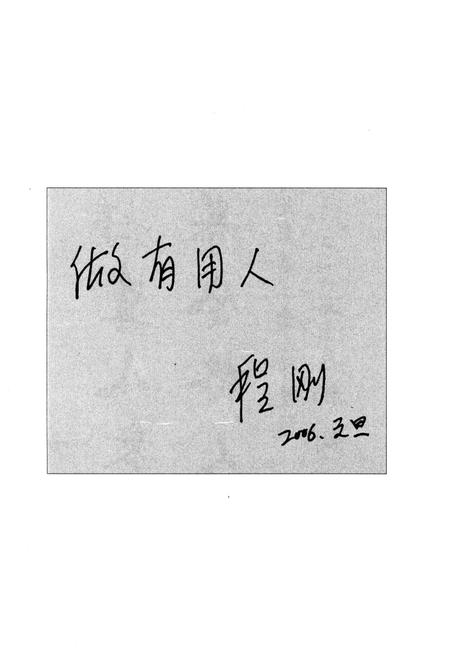 做有用人
程刚
2006.元旦